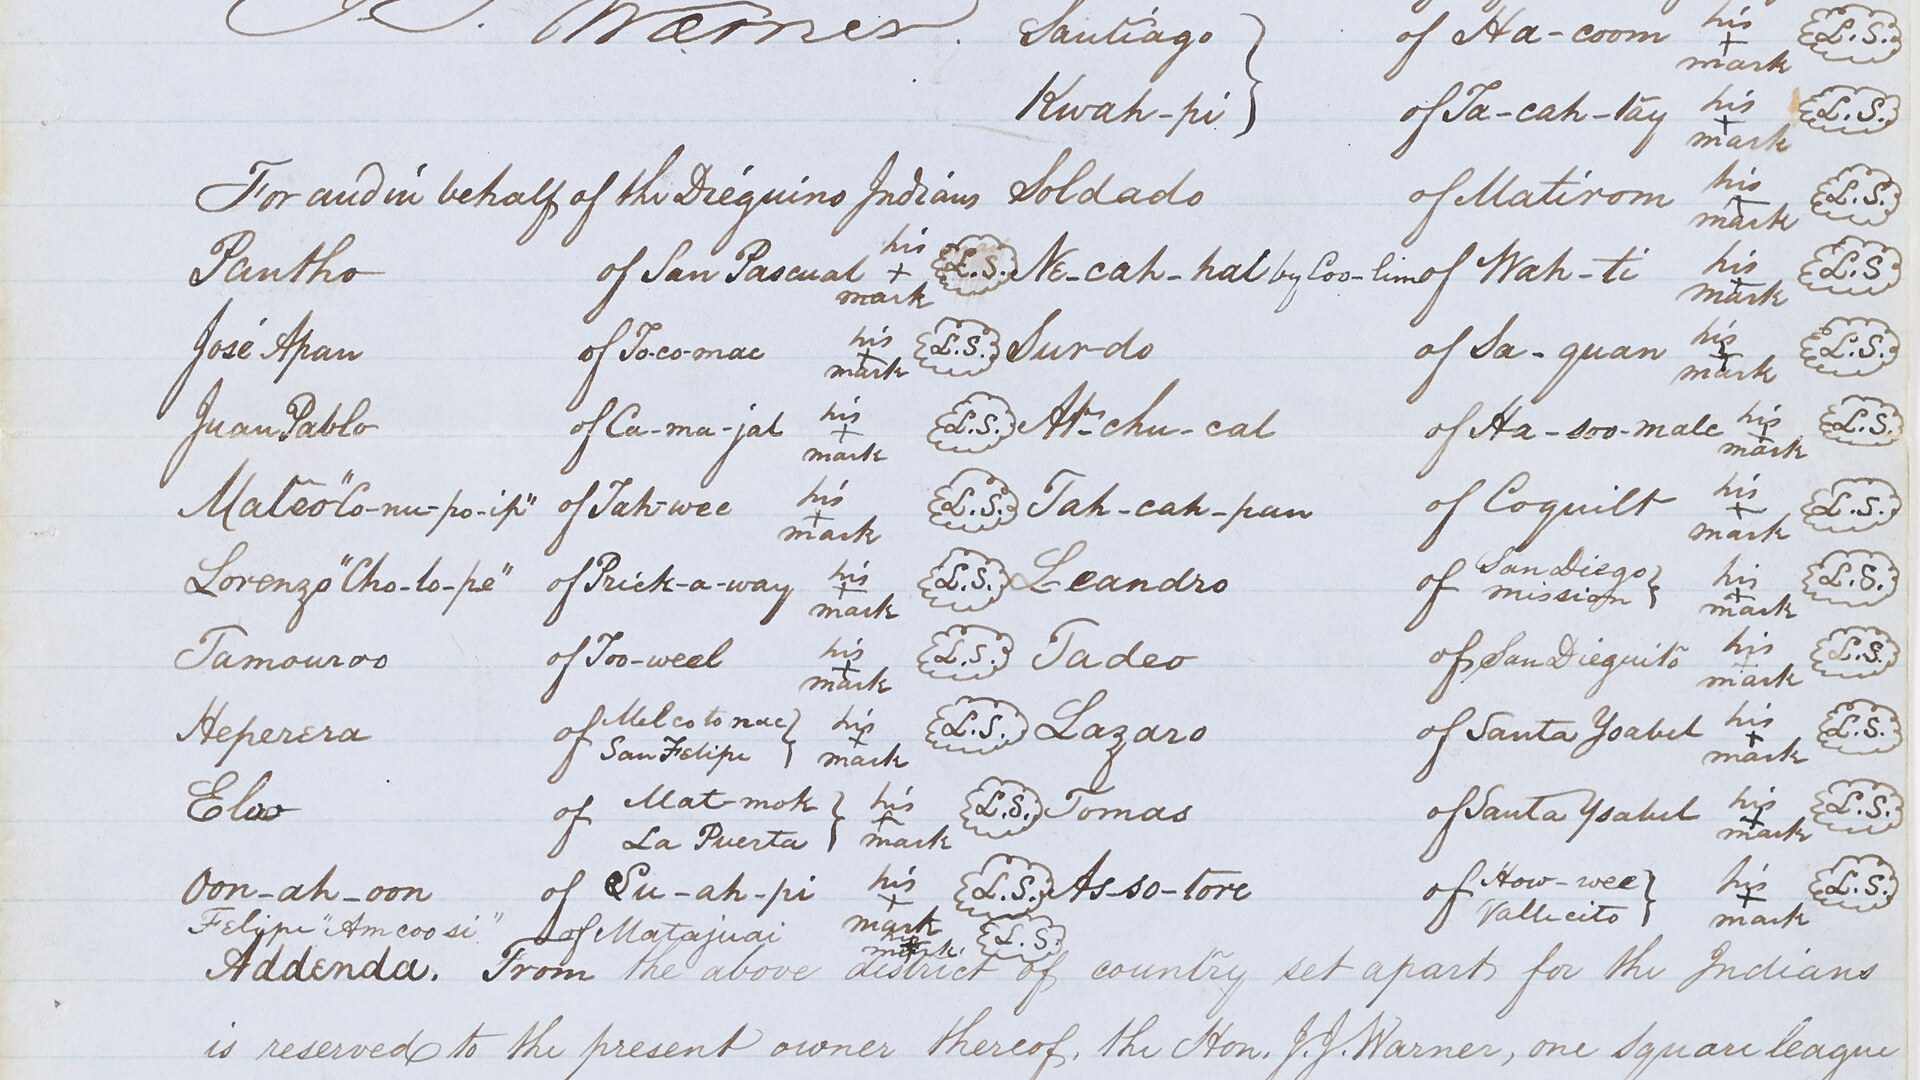 J. J. Warner. Santiago } of Ha-coom his + mark L.S.
Kwah-pi } of Ta-cah-tay his + mark L.S.
For and in behalf of the Dieguino Indians Soldado of Matirom his + mark L.S.
Pantho of San Pascual his + mark L.S. Ne-cah-hal by Coo-lim of Wah-ti his + mark L.S
José Apan of To-co-mac his + mark L.S. Surdo of Sa-quan his + mark L.S.
Juan Pablo of Ca-ma-jal his + mark L.S. At-chu-cal of Ha-soo-male his + mark L.S.
Mateo "Co-nu-po-ip" of Tah-wee his + mark L.S. Tah-cah-pan of Coquilt his + mark L.S.
Lorenzo "Cho-lo-pe" of Prick-a-way his + mark L.S. Leandro of San Diego mission } his + mark L.S.
Tamouroo of Too-weel his + mark L.S. Tadeo of San Dieguito his + mark L.S.
Heperera of Melcotonac San Felipe } his + mark L.S. Lazaro of Santa Ysabel his + mark L.S.
Eloo of Mat-mok La Puerta } his + mark L.S. Tomas of Santa Ysabel his + mark L.S.
Oon-ah-oon of Su-ah-pi his + mark L.S. As-so-tore of How-wee Vallecito } his + mark L.S.
Felipe "Amcoosi" of Matajuai mark L.S.
Addenda. From the above district of country set apart for the Indians
is reserved to the present owner thereof, the Hon. J. J. Warner, one square league